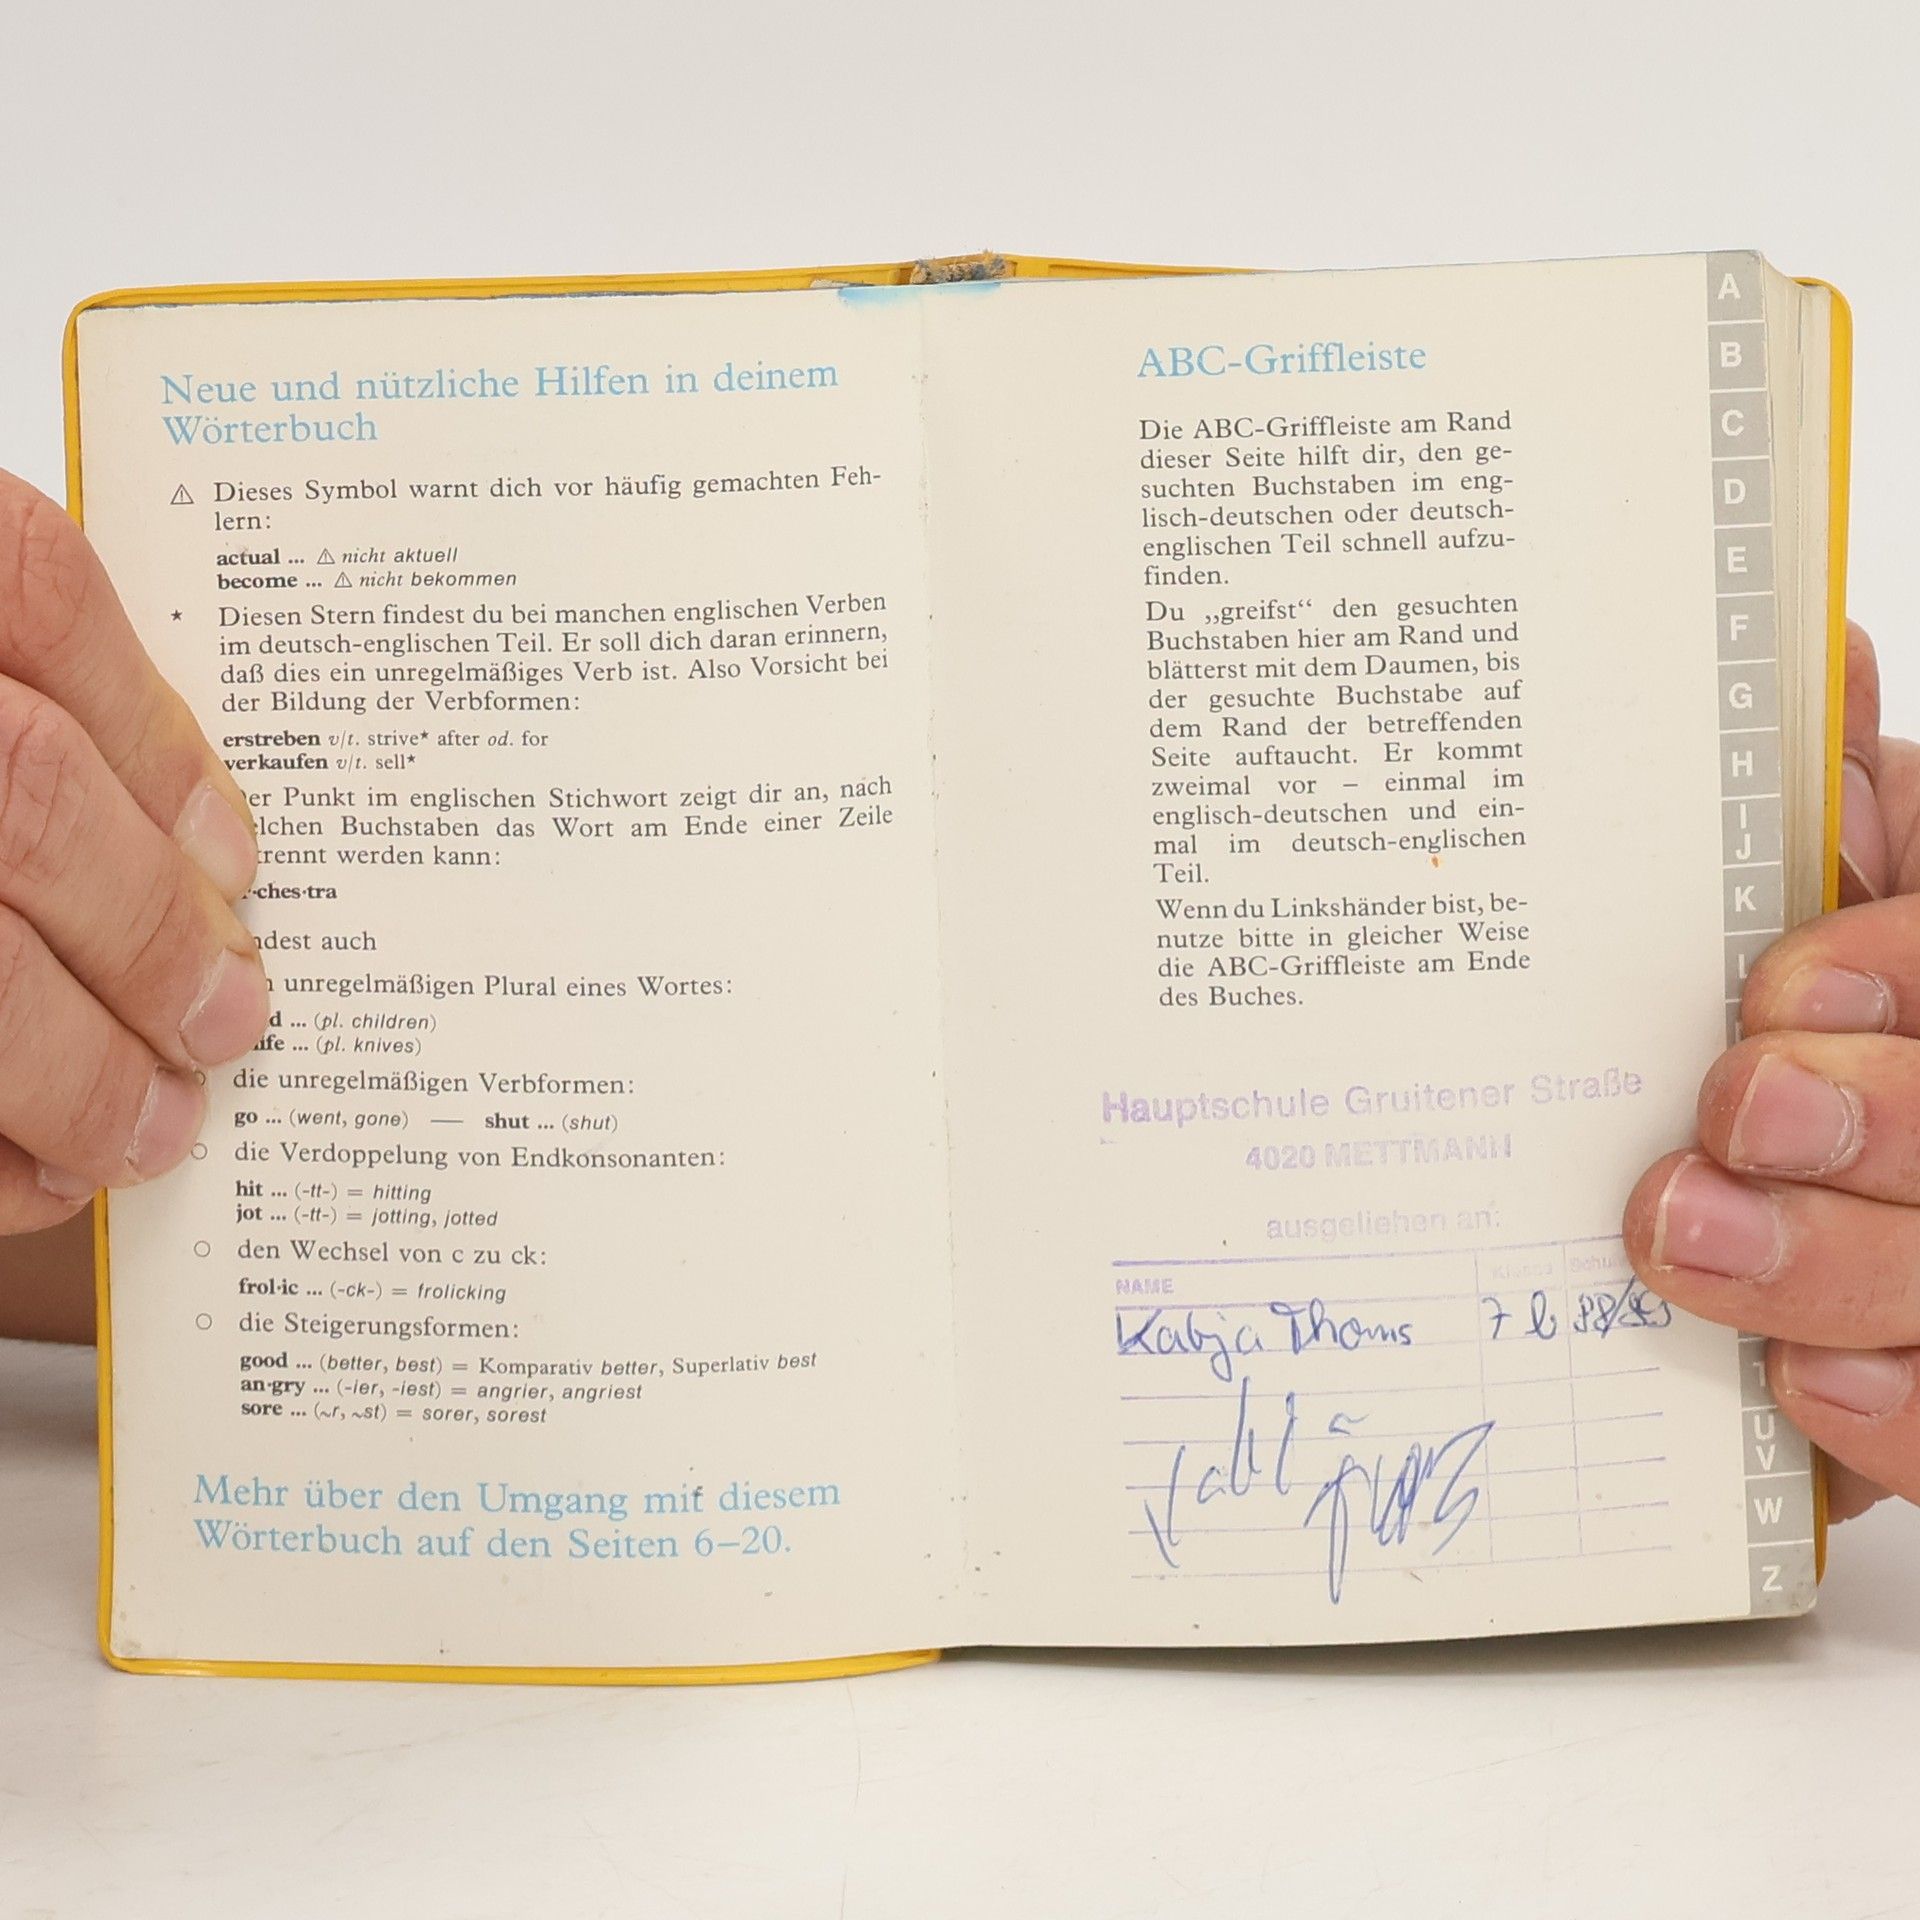 Neue und nützliche Hilfen in deinem
Wörterbuch
⚠ Dieses Symbol warnt dich vor häufig gemachten Feh-
lern:
actual ... ⚠ nicht aktuell
become ... ⚠ nicht bekommen
* Diesen Stern findest du bei manchen englischen Verben
im deutsch-englischen Teil. Er soll dich daran erinnern,
daß dies ein unregelmäßiges Verb ist. Also Vorsicht bei
der Bildung der Verbformen:
erstreben v/t. strive* after od. for
verkaufen v/t. sell*
er Punkt im englischen Stichwort zeigt dir an, nach
lchen Buchstaben das Wort am Ende einer Zeile
trennt werden kann:
·ches·tra
ndest auch
unregelmäßigen Plural eines Wortes:
d ... (pl. children)
ife ... (pl. knives)
○ die unregelmäßigen Verbformen:
go ... (went, gone) — shut ... (shut)
○ die Verdoppelung von Endkonsonanten:
hit ... (-tt-) = hitting
jot ... (-tt-) = jotting, jotted
○ den Wechsel von c zu ck:
frol·ic ... (-ck-) = frolicking
○ die Steigerungsformen:
good ... (better, best) = Komparativ better, Superlativ best
an·gry ... (-ier, -iest) = angrier, angriest
sore ... (~r, ~st) = sorer, sorest
Mehr über den Umgang mit diesem
Wörterbuch auf den Seiten 6–20.
ABC-Griffleiste
Die ABC-Griffleiste am Rand
dieser Seite hilft dir, den ge-
suchten Buchstaben im eng-
lisch-deutschen oder deutsch-
englischen Teil schnell aufzu-
finden.
Du „greifst“ den gesuchten
Buchstaben hier am Rand und
blätterst mit dem Daumen, bis
der gesuchte Buchstabe auf
dem Rand der betreffenden
Seite auftaucht. Er kommt
zweimal vor – einmal im
englisch-deutschen und ein-
mal im deutsch-englischen
Teil.
Wenn du Linkshänder bist, be-
nutze bitte in gleicher Weise
die ABC-Griffleiste am Ende
des Buches.
Hauptschule Gruitener Straße
4020 METTMANN
ausgeliehen an:
NAME Klasse Schul
Katja Thoms 7 b 88/89
A
B
C
D
E
F
G
H
I
J
K
L
T
U
V
W
Z